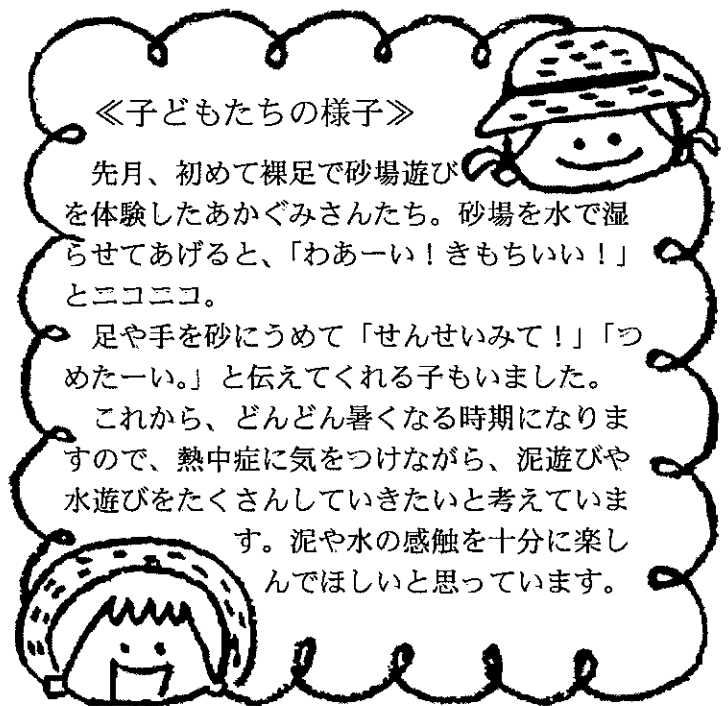 ≪子どもたちの様子≫
先月、初めて裸足で砂場遊び
を体験したあかぐみさんたち。砂場を水で湿
らせてあげると、「わあーい！きもちいい！」
とニコニコ。
足や手を砂にうめて「せんせいみて！」「つ
めたーい。」と伝えてくれる子もいました。
これから、どんどん暑くなる時期になりま
すので、熱中症に気をつけながら、泥遊びや
水遊びをたくさんしていきたいと考えていま
す。泥や水の感触を十分に楽し
んでほしいと思っています。